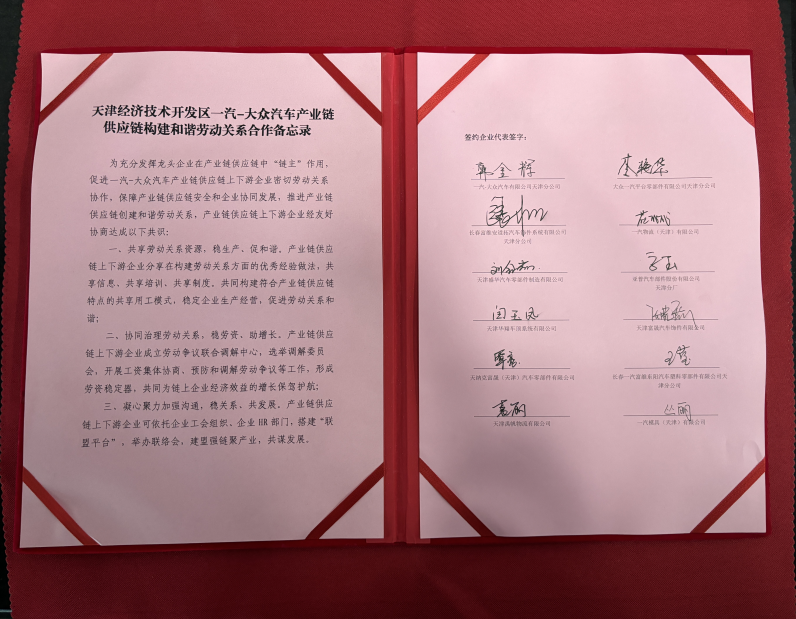 天津经济技术开发区一汽-大众汽车产业链
供应链构建和谐劳动关系合作备忘录
为充分发挥龙头企业在产业链供应链中“链主”作用，
促进一汽-大众汽车产业链供应链上下游企业密切劳动关系
协作，保障产业链供应链安全和企业协同发展，推进产业链
供应链创建和谐劳动关系，产业链供应链上下游企业经友好
协商达成以下共识：
一、共享劳动关系资源，稳生产、促和谐。产业链供应
链上下游企业分享在构建劳动关系方面的优秀经验做法，共
享信息、共享培训、共享制度，共同构建符合产业链供应链
特点的共享用工模式，稳定企业生产经营，促进劳动关系和
谐；
二、协同治理劳动关系，稳劳资、助增长。产业链供应
链上下游企业成立劳动争议联合调解中心，选举调解委员
会，开展工资集体协商、预防和调解劳动争议等工作，形成
劳资稳定器，共同为链上企业经济效益的增长保驾护航；
三、凝心聚力加强沟通，稳关系、共发展。产业链供应
链上下游企业可依托企业工会组织、企业HR部门，搭建“联
盟平台”，举办联络会，建盟强链聚产业，共谋发展。
签约企业代表签字：
韩金辉
一汽-大众汽车有限公司天津分公司
大众一汽平台零部件有限公司天津分公司
长春富维安道拓汽车饰件系统有限公司
天津分公司
一汽物流（天津）有限公司
天津盛华汽车零部件制造有限公司
汽车部件股份有限公司
天津分厂
闫玉凤
天津华翔车顶系统有限公司
天津富晟汽车饰件有限公司
天纳克富晟（天津）汽车零部件有限公司
王莹
长春一汽富维东阳汽车塑料零部件有限公司天
津分公司
物流有限公司
丛丽
一汽模具（天津）有限公司